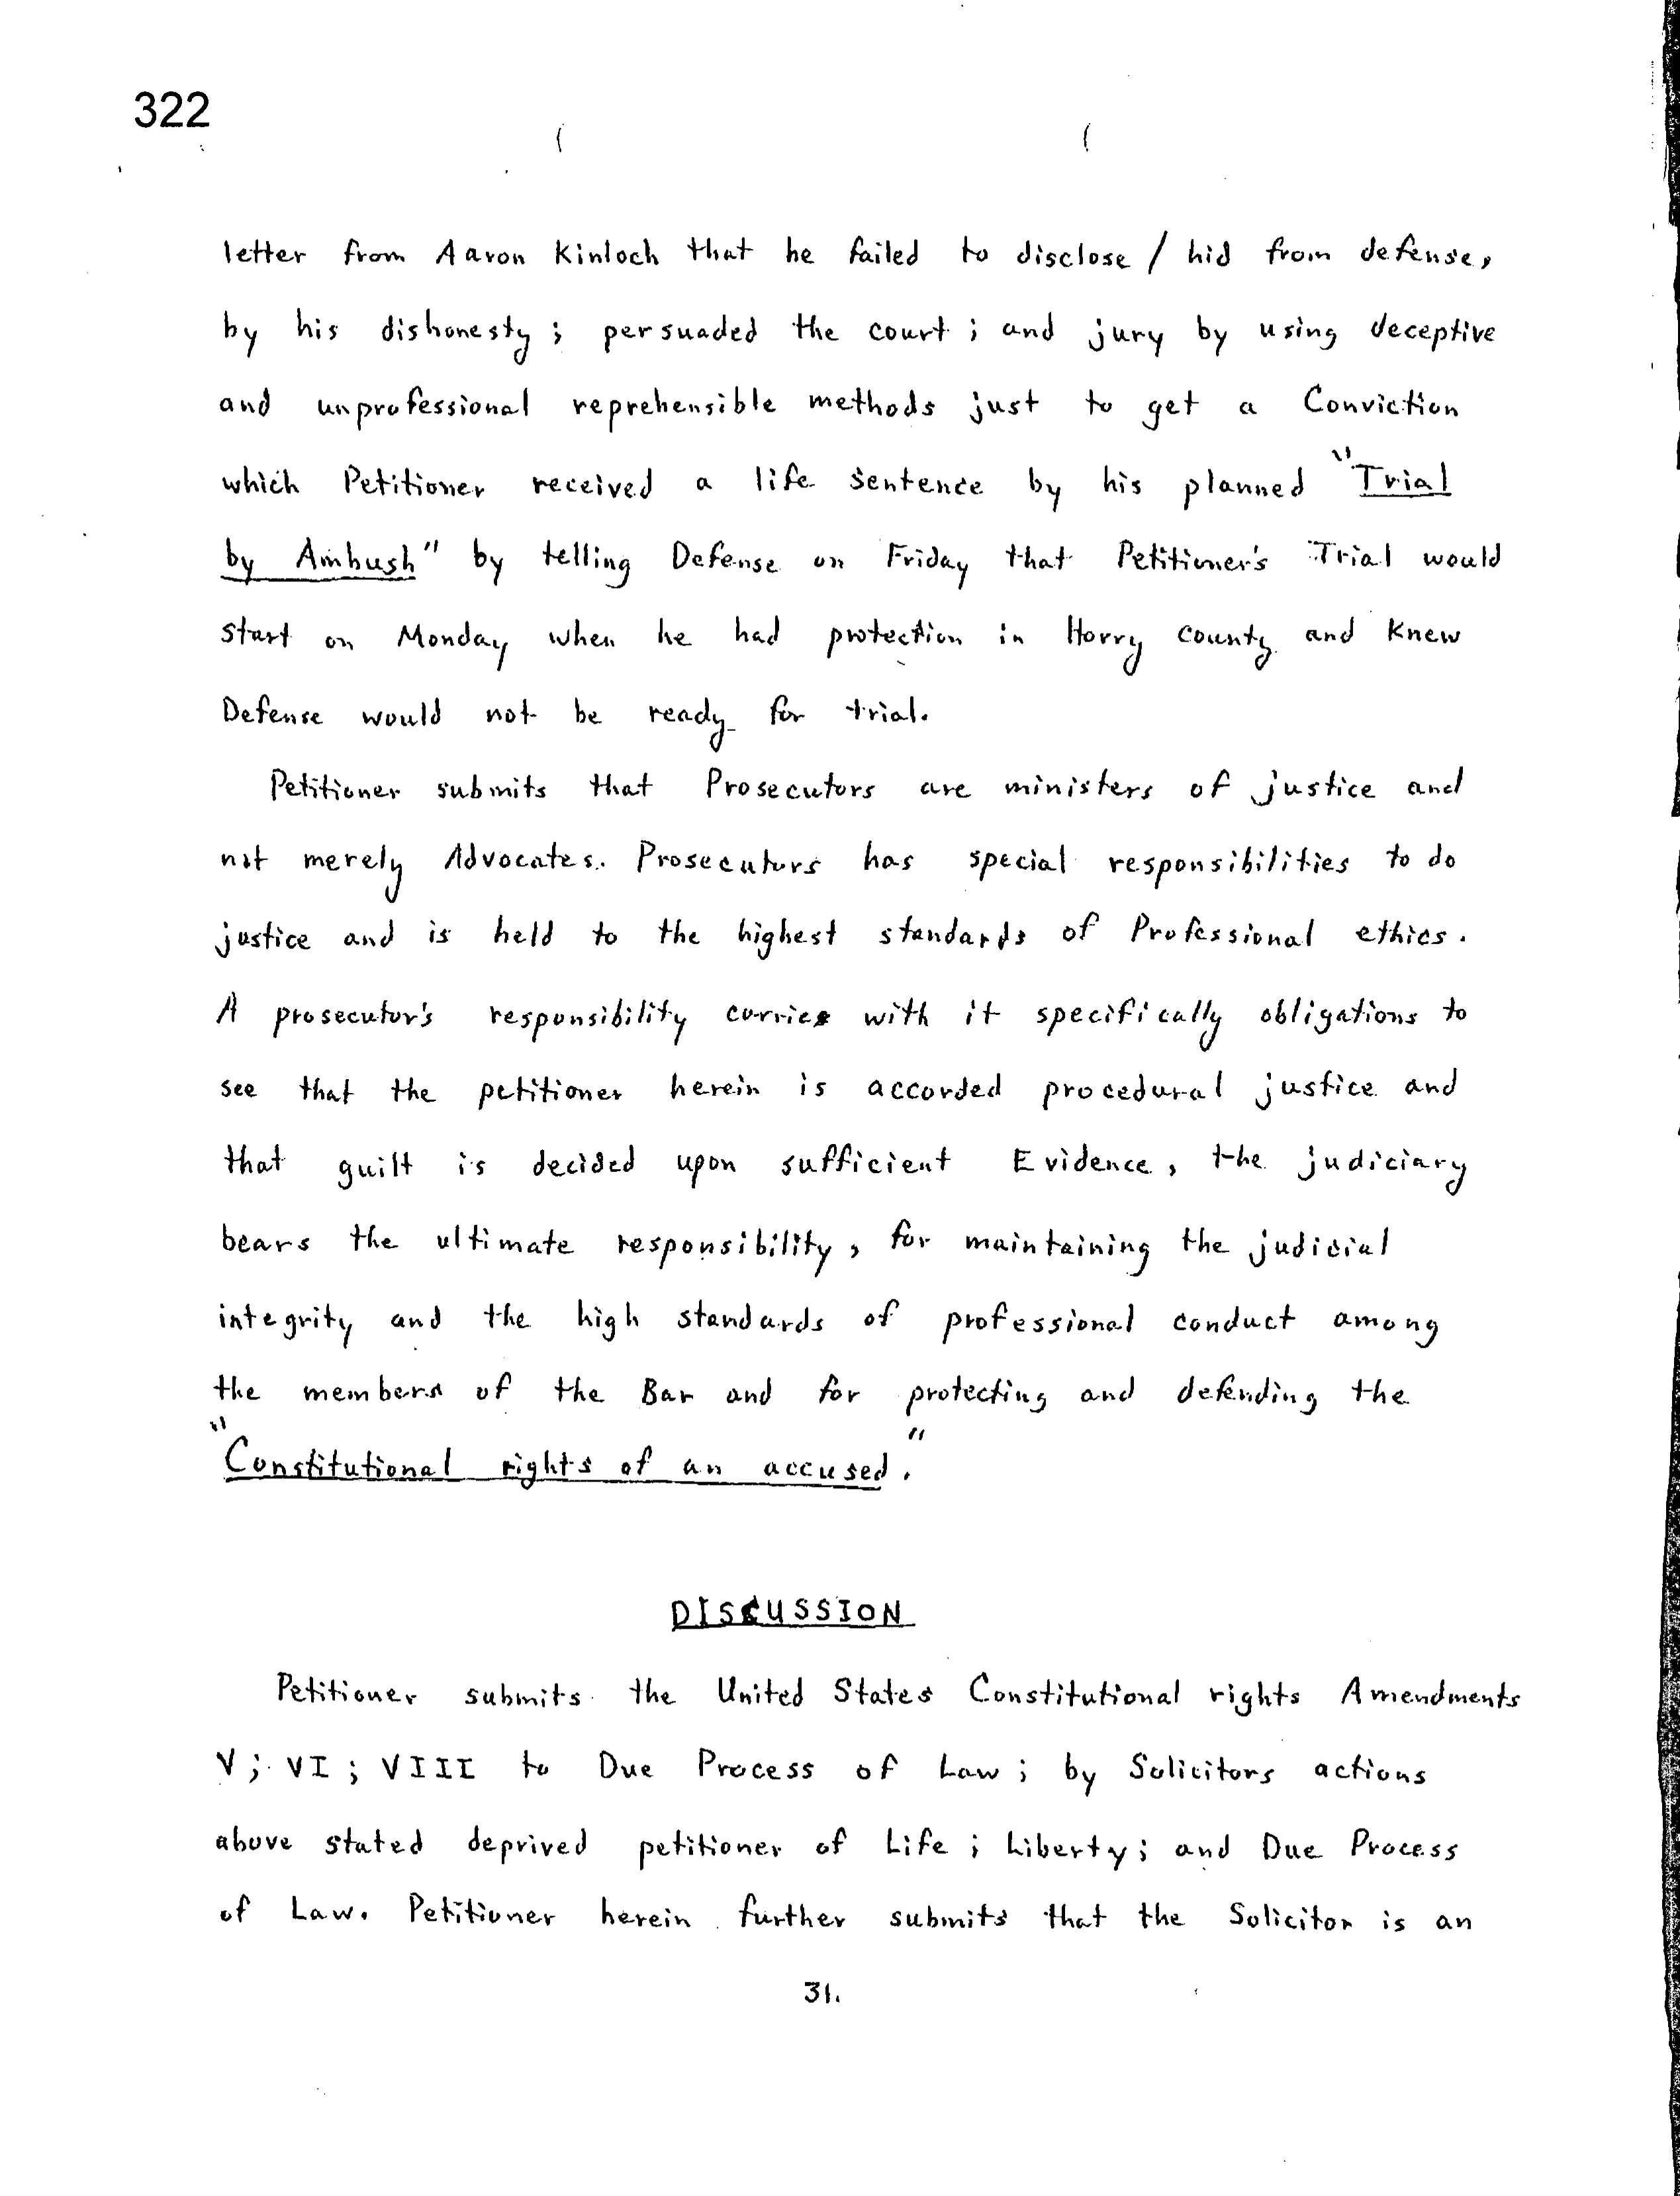 322
letter from Aaron Kinloch that he failed to disclose / hid from defense,
by his dishonesty ; persuaded the court ; and jury by using deceptive
and unprofessional reprehensible methods just to get a Conviction
which Petitioner received a life sentence by his planned "Trial
by Ambush" by telling Defense on Friday that Petitioner's Trial would
start on Monday when he had protection in Horry County and Knew
Defense would not be ready for trial.
Petitioner submits that Prosecutors are ministers of justice and
not merely Advocates. Prosecutors has special responsibilities to do
justice and is held to the highest standards of Professional ethics.
A prosecutor's responsibility carries with it specifically obligations to
see that the petitioner herein is accorded procedural justice and
that guilt is decided upon sufficient Evidence, the judiciary
bears the ultimate responsibility, for maintaining the judicial
integrity and the high standards of professional conduct among
the members of the Bar and for protecting and defending the
"Constitutional rights of an accused."
DISCUSSION
Petitioner submits the United States Constitutional rights Amendments
V; VI; VIII to Due Process of Law; by Solicitors actions
above stated deprived petitioner of Life; Liberty; and Due Process
of Law. Petitioner herein further submits that the Solicitor is an
31.